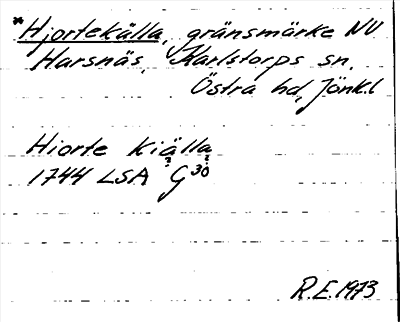 *Hjortekälla, gränsmärke NV
Harsnäs, Karlstorps sn.
Östra hd, Jönk.l
Hiorte Kiälla
1744 LSA G30
R.E. 1973